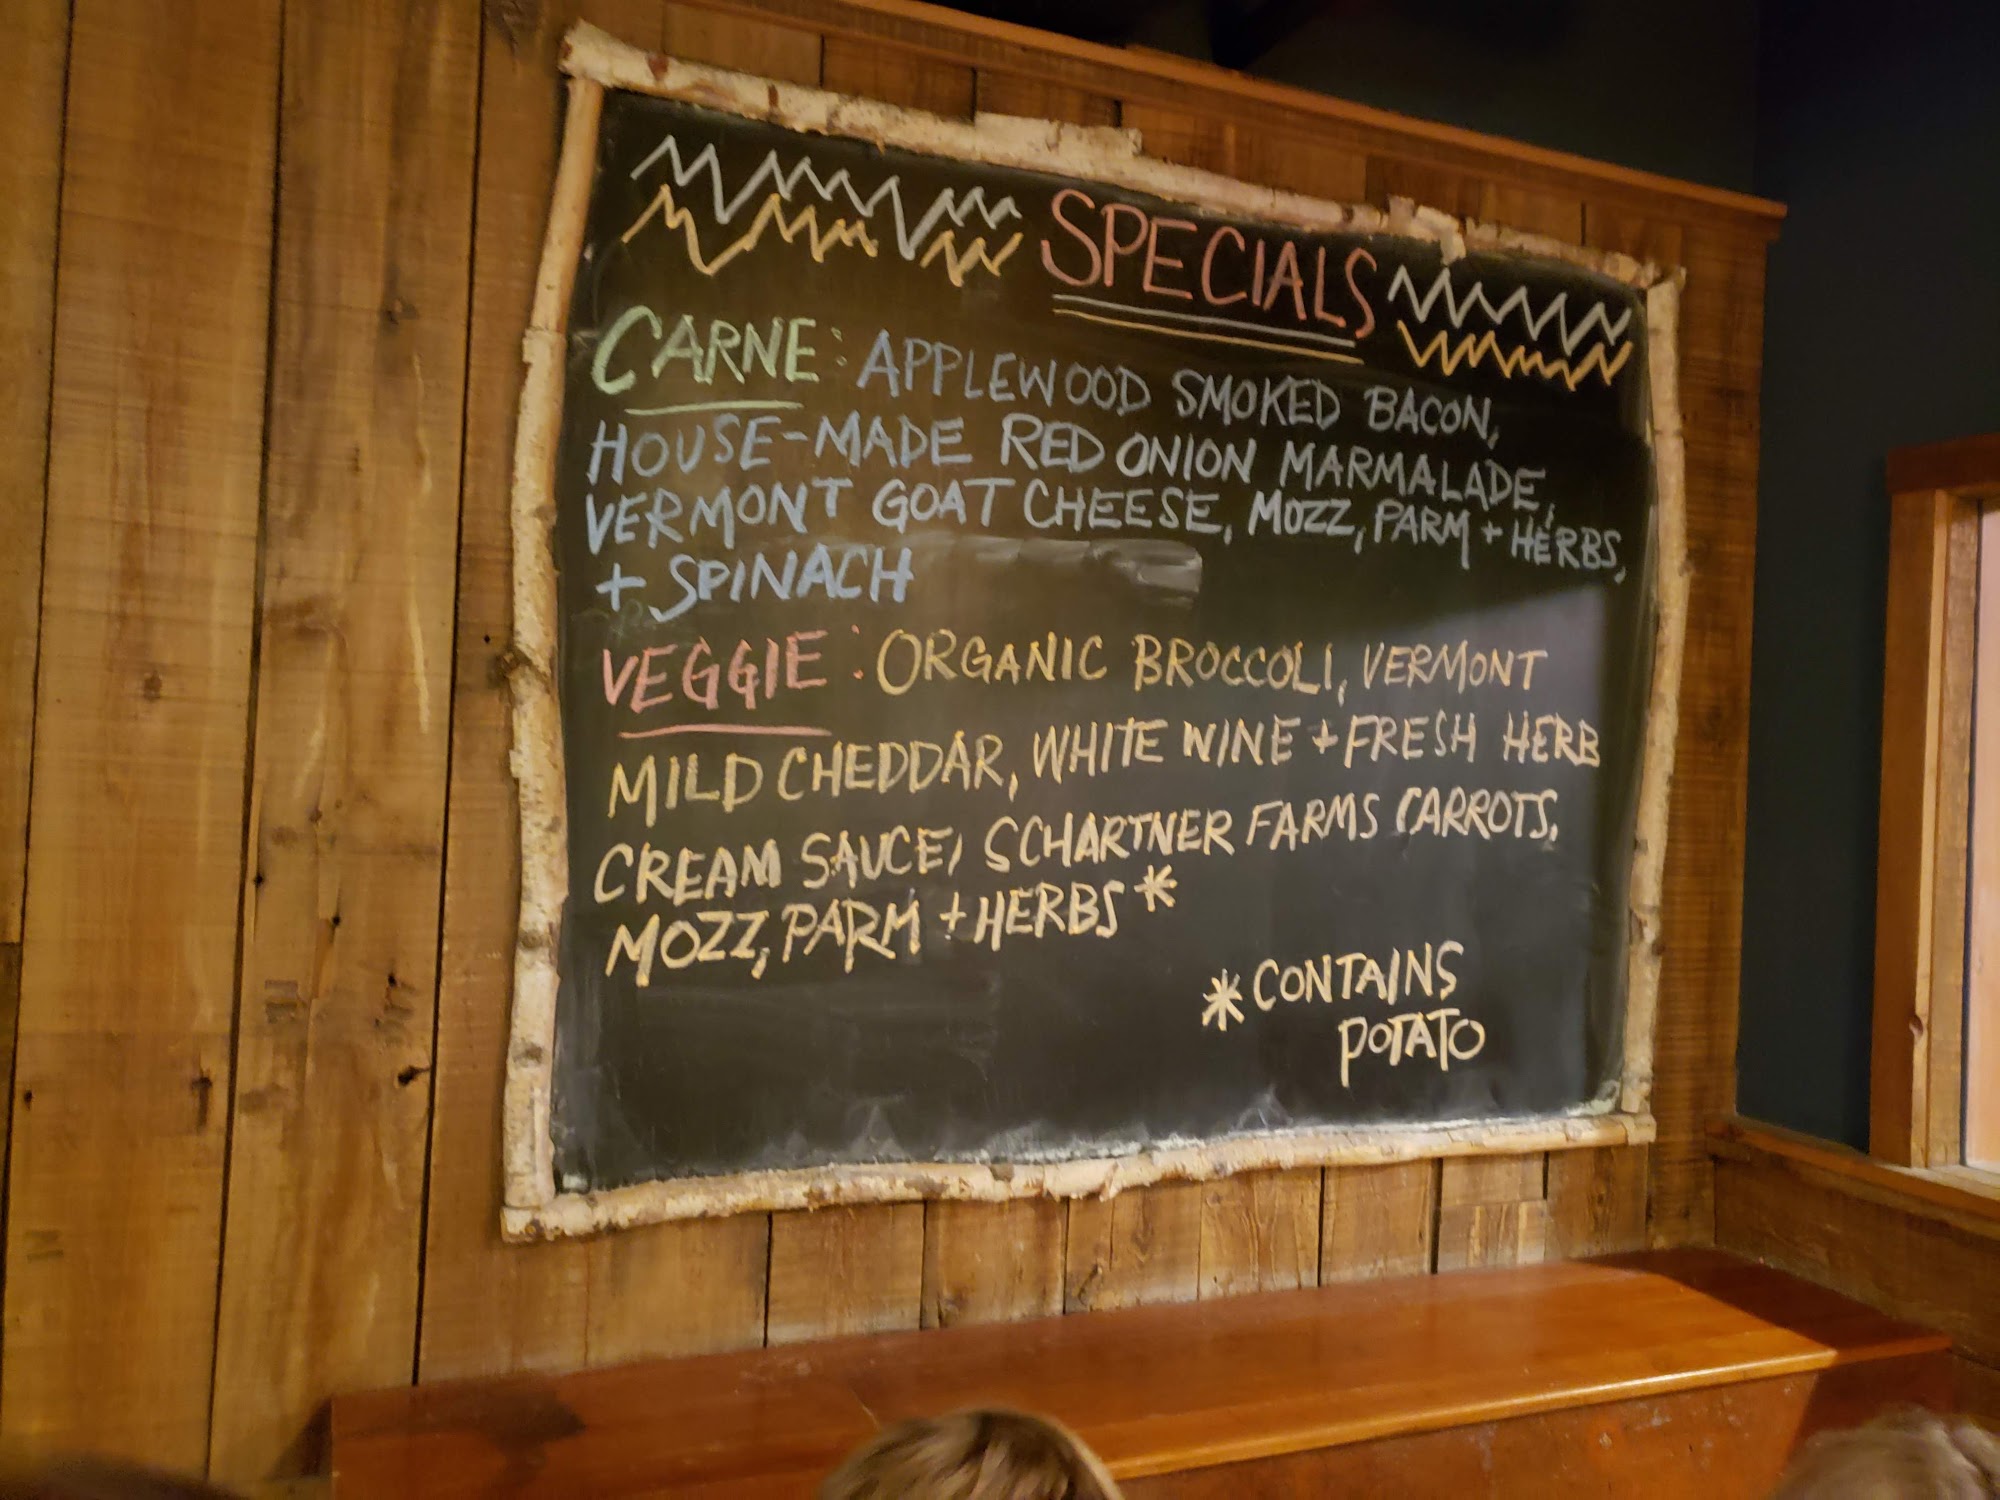 SPECIALS
CARNE: APPLEWOOD SMOKED BACON,
HOUSE-MADE RED ONION MARMALADE,
VERMONT GOAT CHEESE, MOZZ, PARM + HERBS,
+ SPINACH
VEGGIE: ORGANIC BROCCOLI, VERMONT
MILD CHEDDAR, WHITE WINE + FRESH HERB
CREAM SAUCE, SCHARTNER FARMS CARROTS,
MOZZ, PARM + HERBS *
* CONTAINS
POTATO